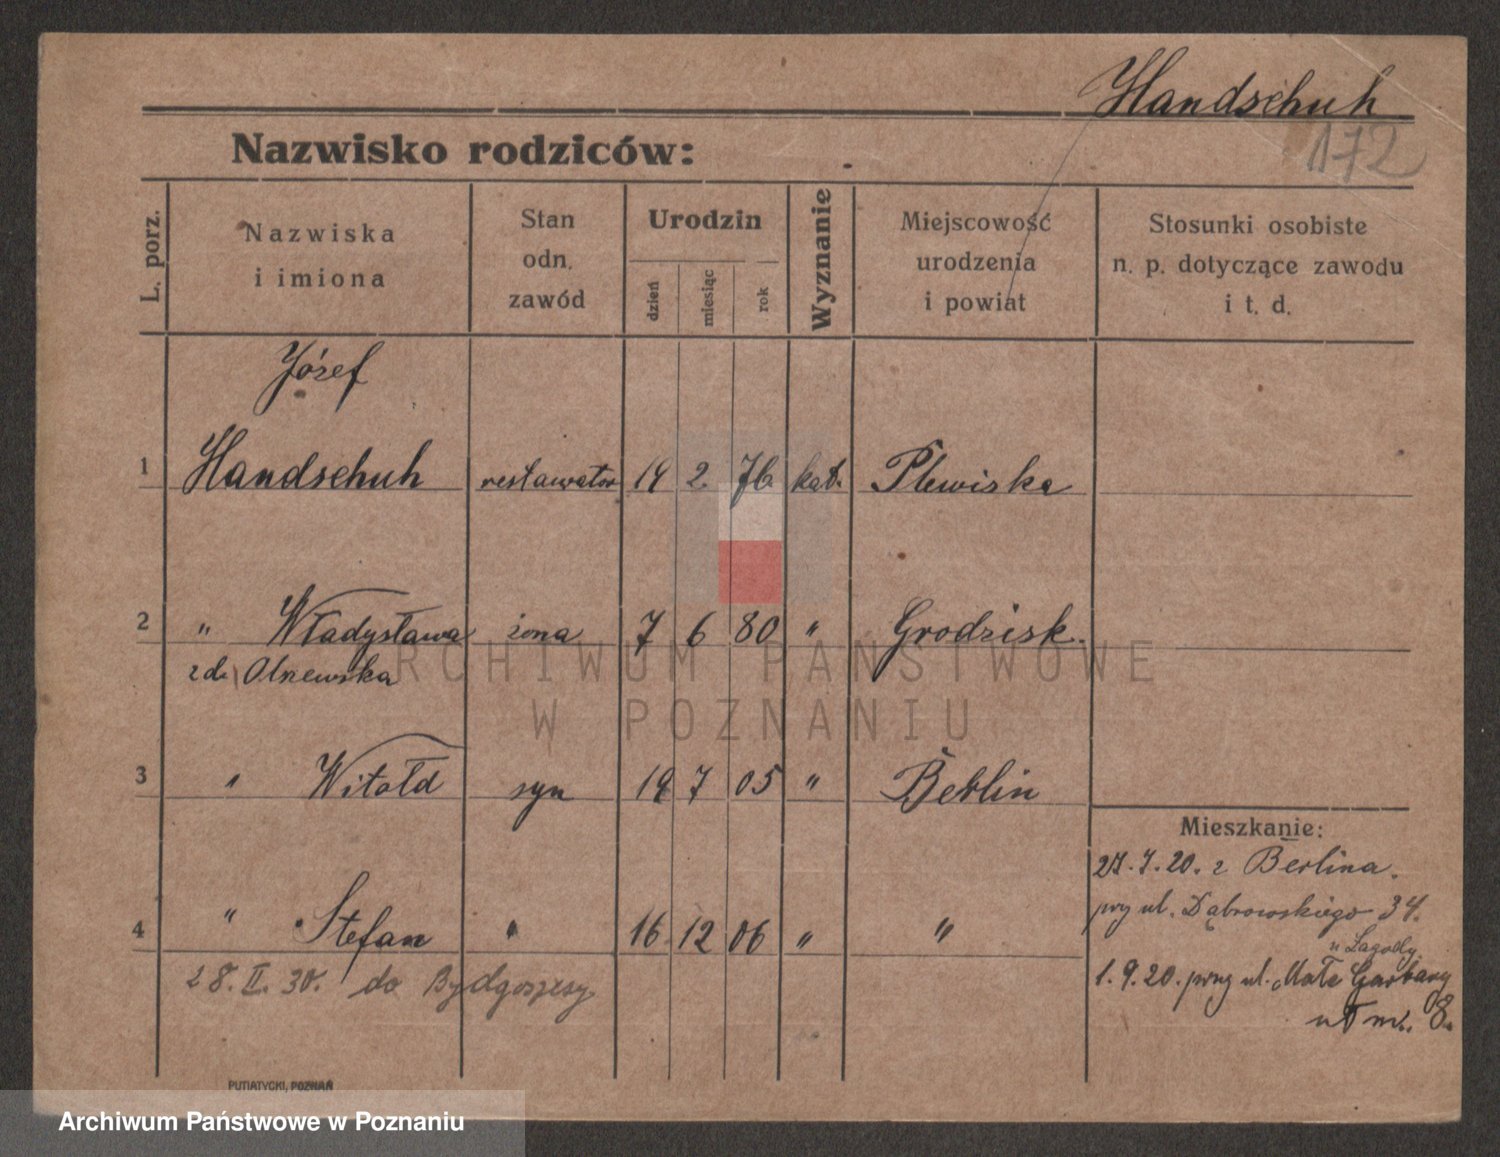 Handschuh
172
Nazwisko rodziców:
L. porz.
Nazwiska
i imiona
Stan
odn.
zawód
Urodzin
dzień
miesiąc
rok
Wyznanie
Miejscowość
urodzenia
i powiat
Stosunki osobiste
n. p. dotyczące zawodu
i t. d.
Józef
1 Handschuh restawator 19 2. 76 kat. Plewiska
2 " Władysława żona 7 6 80 " Grodzisk.
z d. Olszewska
3 " Witołd syn 19 7 05 " Berlin
Mieszkanie:
27.7.20. z Berlina.
przy ul. Dąbrowskiego 34.
4 " Stefan " 16 12 06 " "
u Zagody
28.II.30. do Bydgoszczy
1.9.20. przy ul. Małe Garbary
m. 8.
PUTIATYCKI, POZNAŃ
ARCHIWUM PAŃSTWOWE
W POZNANIU
Archiwum Państwowe w Poznaniu